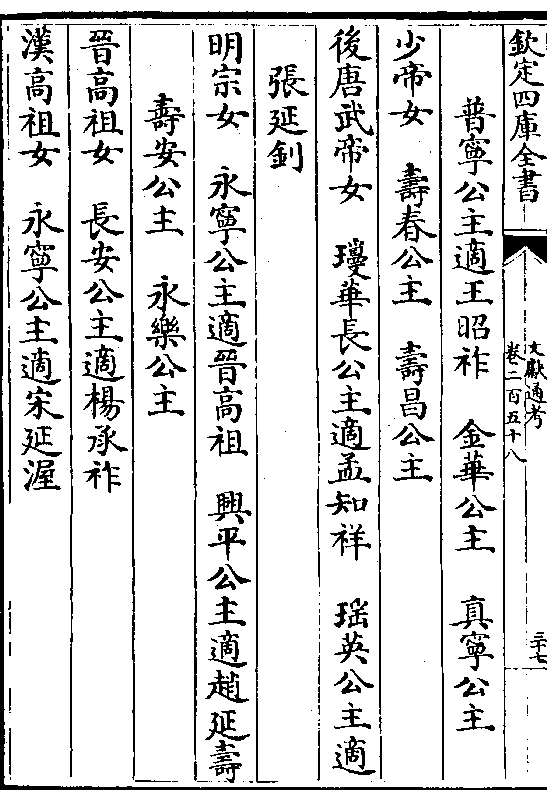 欽定四庫全書
文獻通考
卷二百五十八
三十七
普寧公主適王昭祚　金華公主　真寧公主
少帝女　壽春公主　壽昌公主
後唐武帝女　瓊華長公主適孟知祥　瑶英公主適
張延釗
明宗女　永寧公主適晉高祖　興平公主適趙延壽
壽安公主　永樂公主
晉高祖女　長安公主適楊承祚
漢高祖女　永寧公主適宋延渥